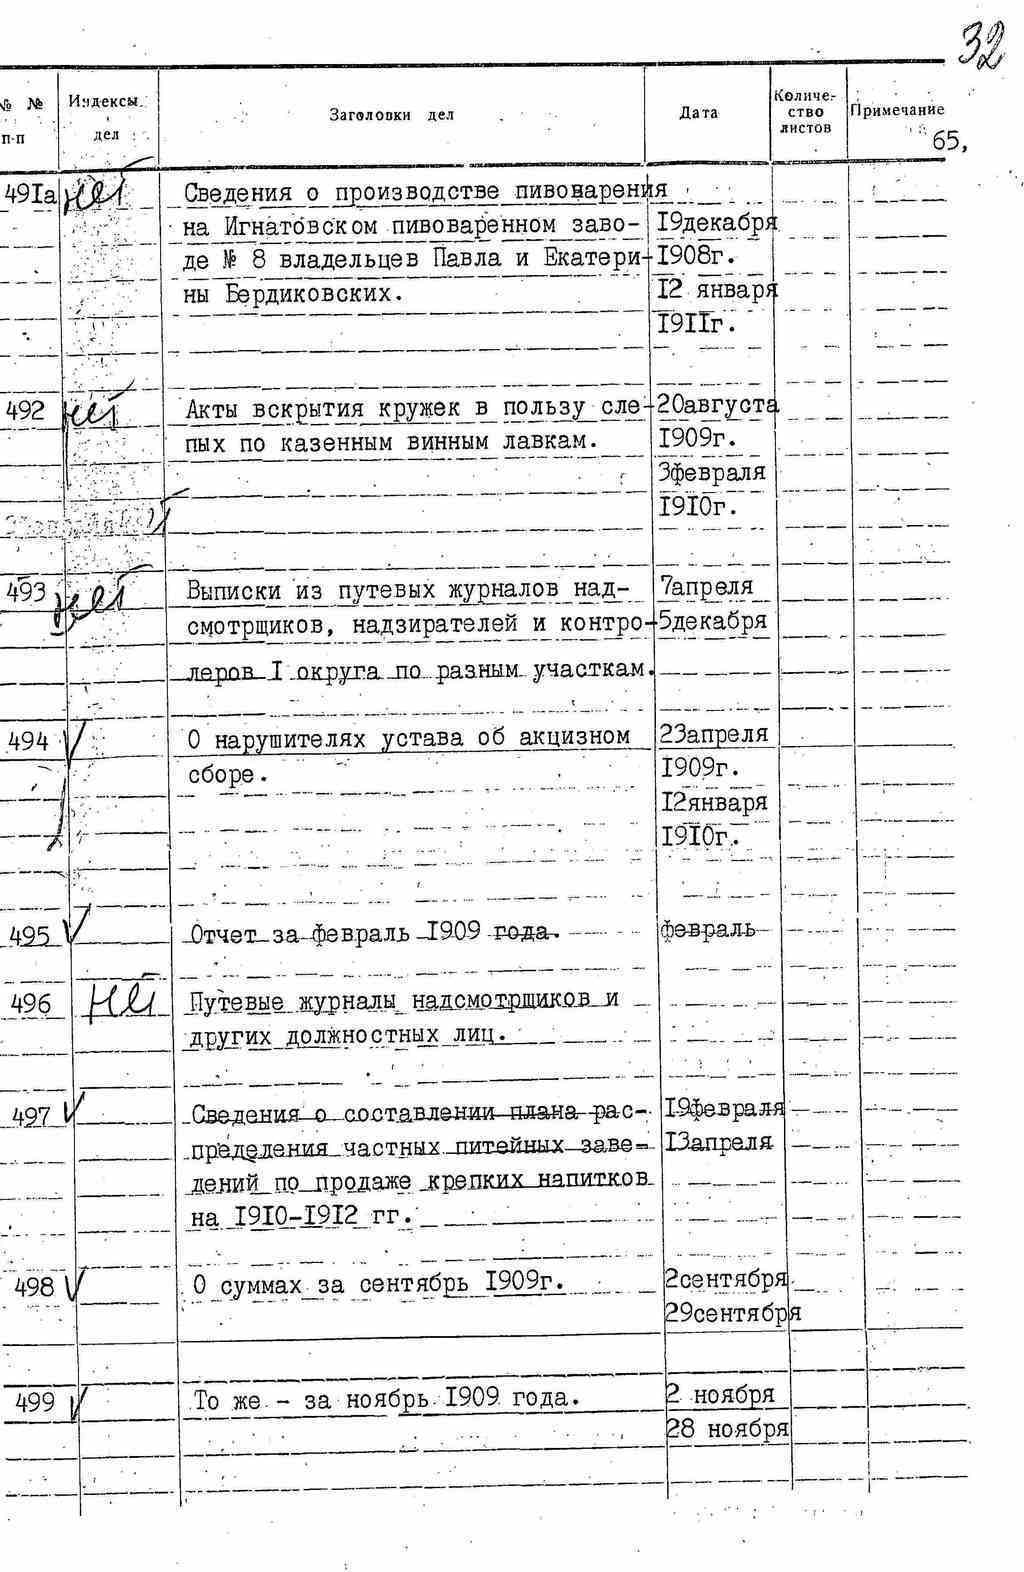 32
№ № п-п | Индексы дел | Заголовки дел | Дата | Количество листов | Примечание
65,
491а нет Сведения о производстве пивоварения
на Игнатовском пивоваренном заво- 19декабря
де № 8 владельцев Павла и Екатери- 1908г.
ны Бердиковских. 12 января
1911г.
492 нет Акты вскрытия кружек в пользу сле- 20августа
пых по казенным винным лавкам. 1909г.
3февраля
1910г.
493 нет Выписки из путевых журналов над- 7апреля
смотрщиков, надзирателей и контро- 5декабря
леров I округа по разным участкам.
494 V О нарушителях устава об акцизном 23апреля
сборе. 1909г.
12января
1910г.
495 V Отчет за февраль 1909 года. февраль
496 нет Путевые журналы надсмотрщиков и
других должностных лиц.
497 V Сведения о составлении плана рас- 19февраля
пределения частных питейных заве- 13апреля
дений по продаже крепких напитков
на 1910-1912 гг.
498 V О суммах за сентябрь 1909г. 2сентября
29сентября
499 V То же - за ноябрь 1909 года. 2 ноября
28 ноября